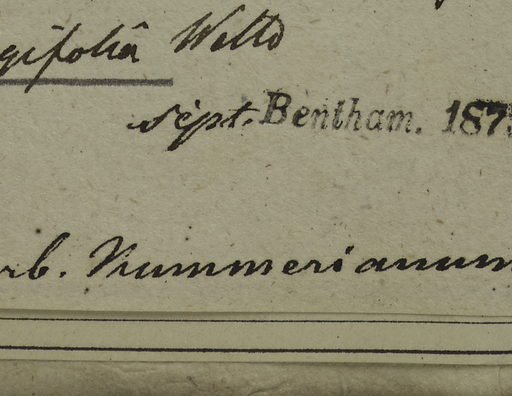 gifoliâ Wello
sept. Bentham. 187
rb. Nummerianum